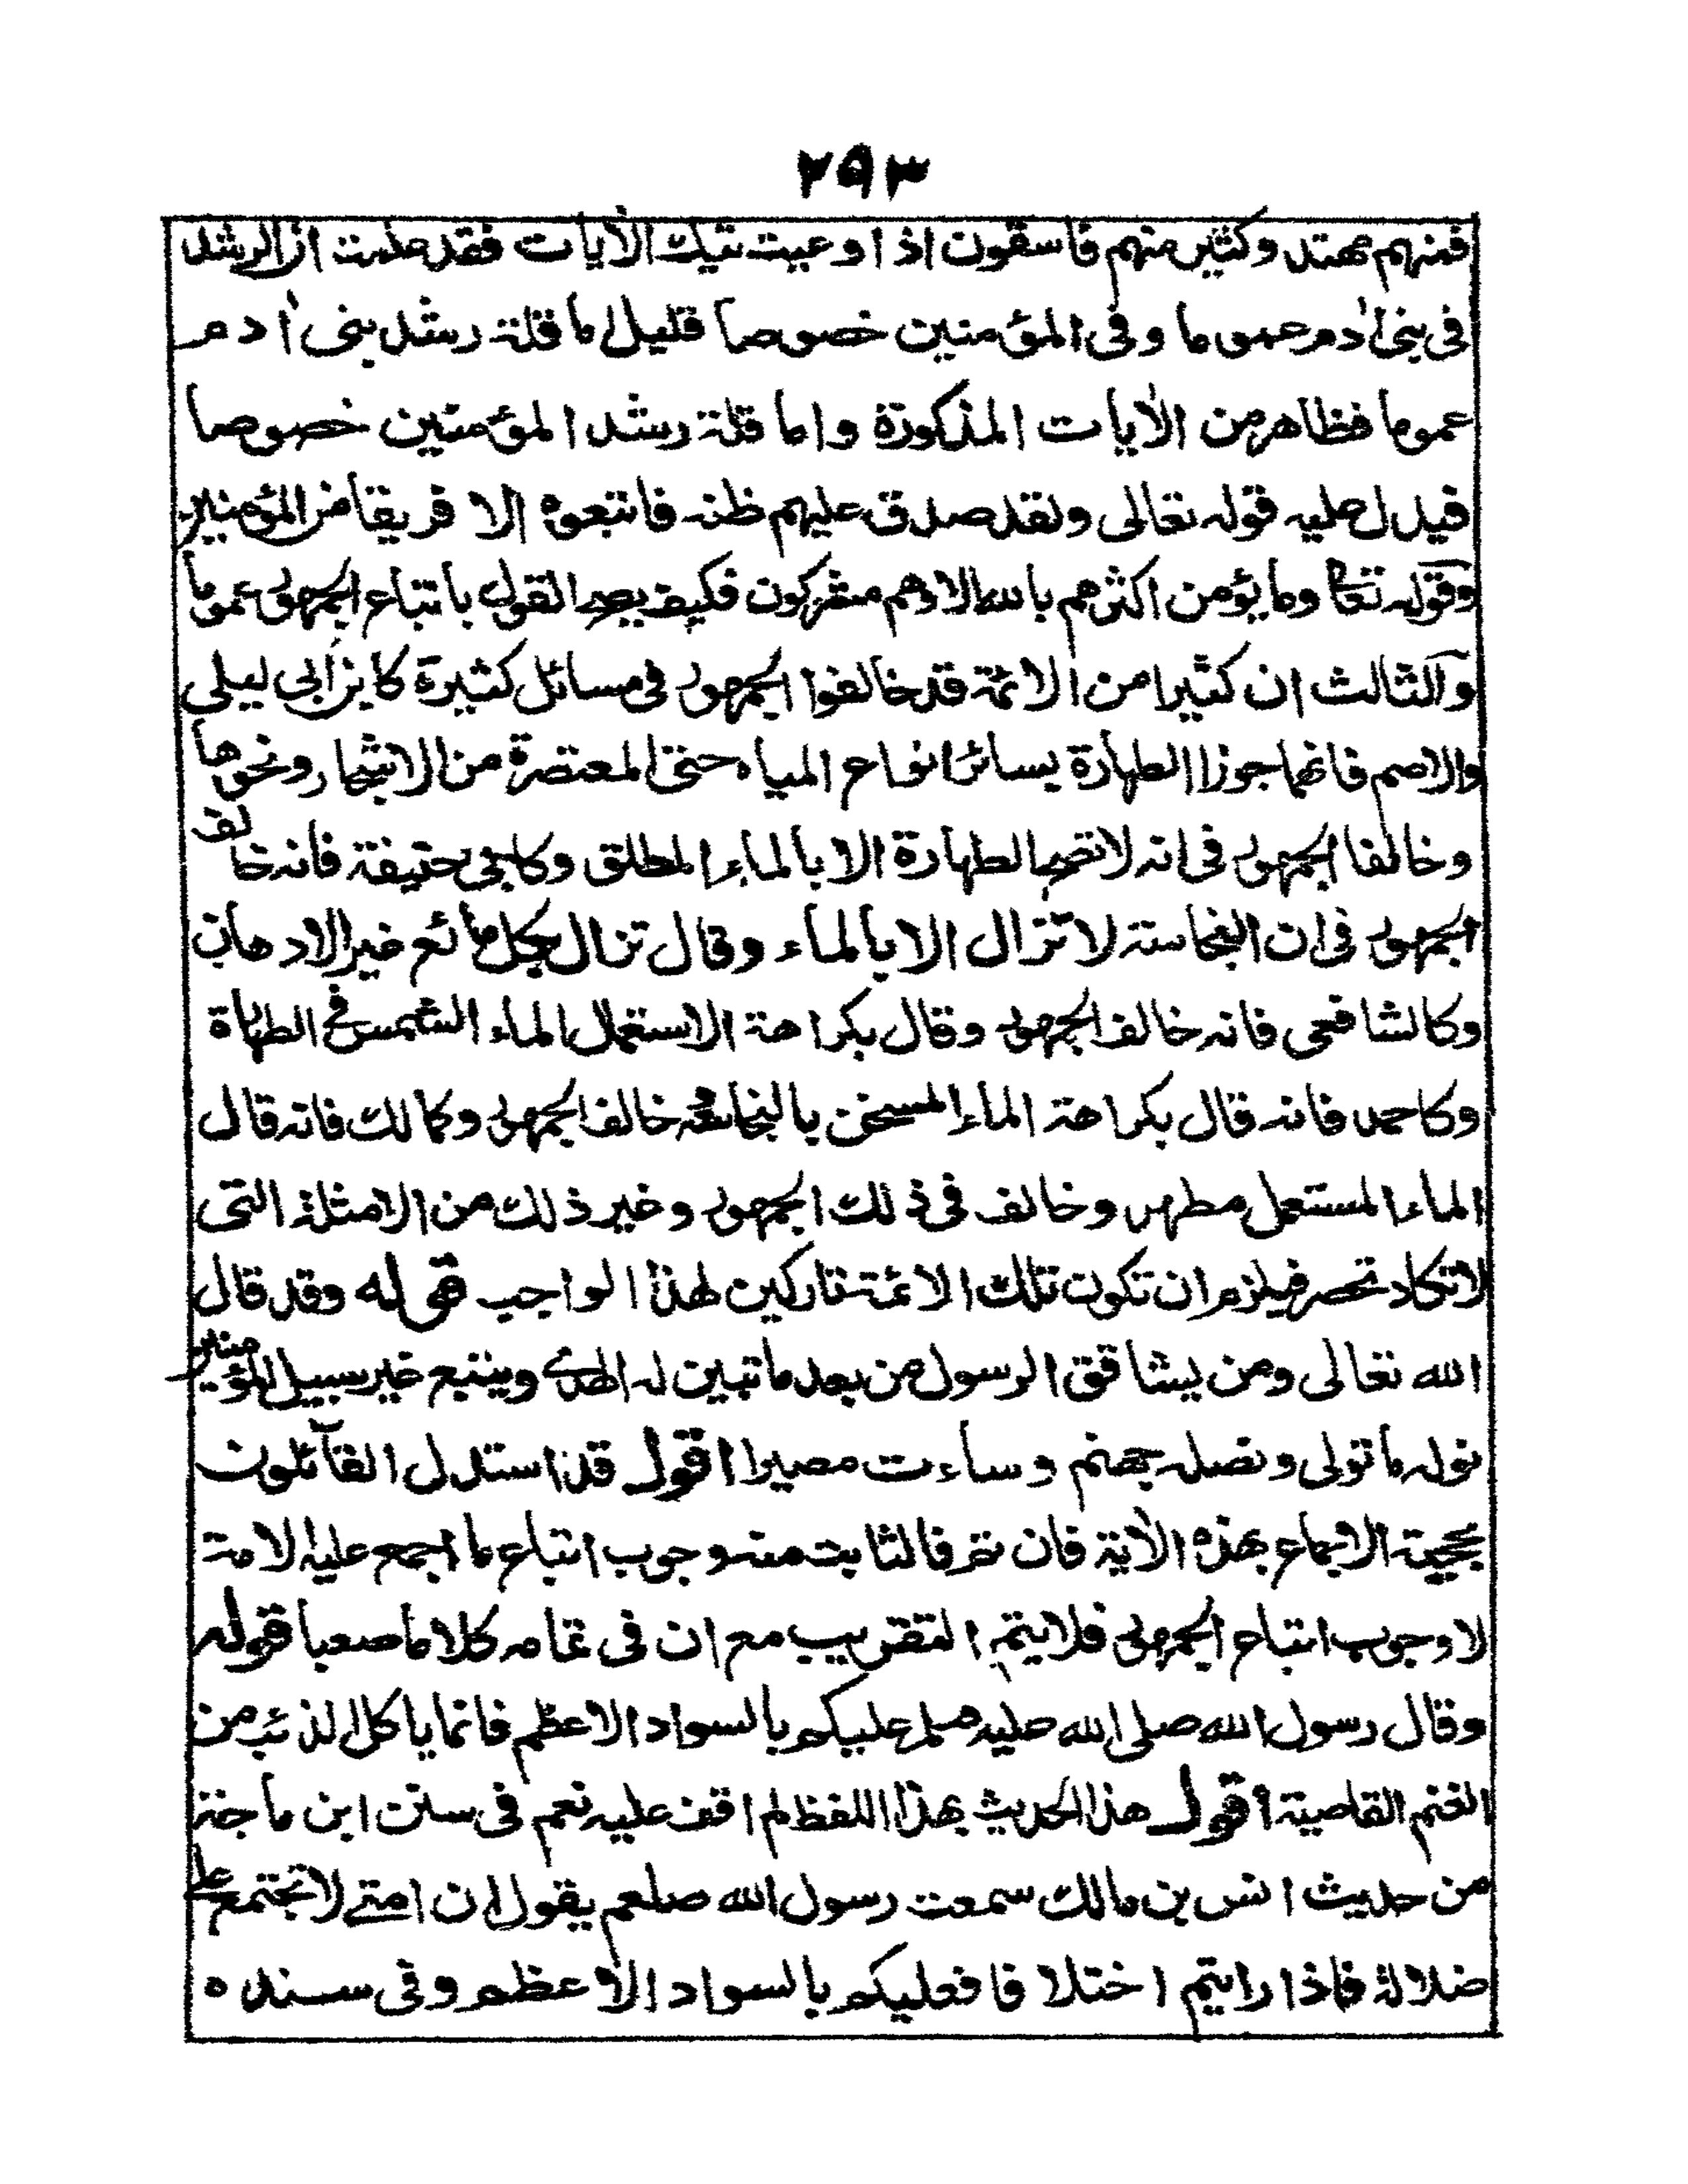 ٢٩٣
فمنهم مهتد وكثير منهم فاسقون اذا وعيت تيك الأيات فقد علمت ان الرشد
فى بنى اٰدم عموما وفى المؤمنين خصوصا قليل اما قلة رشد بنى اٰدم
عموما فظاهر من الاٰيات المذكورة واما قلة رشد المؤمنين خصوصا
فيدل عليه قوله تعالى ولقد صدق عليهم ظنه فاتبعوه الا فريقا من المؤمنين
وقوله تعالى وما يؤمن اكثرهم بالله الا وهم مشركون فكيف يصح القول باتباع الجمهور عموما
والثالث ان كثيرا من الائمة قد خالفوا الجمهور فى مسائل كثيرة كابن ابى ليلى
والاصم فانهما جوزا الطهارة بسائر انواع المياه حتى المعتصرة من الاشجار ونحوها
وخالفا الجمهور فى انه لا تصح الطهارة الا بالماء المطلق وكابى حنيفة فانه خالف
الجمهور فى ان النجاسة لا تزال الا بالماء وقال تزال بكل مائع غير الادهان
وكالشافعى فانه خالف الجمهور وقال بكراهة الاستعمال بالماء الشمس فى الطهارة
وكاحمد فانه قال بكراهة الماء المسخن بالنجاسة خالف الجمهور وكمالك فانه قال
الماء المستعمل مطهر وخالف فى ذلك الجمهور وغير ذلك من الامثلة التى
لا تكاد تحصر فيلزم ان تكون تلك الائمة تاركين لهذا الواجب قوله وقد قال
الله تعالى ومن يشاقق الرسول من بعد ما تبين له الهدى ويتبع غير سبيل المؤمنين
نوله ما تولى ونصله جهنم وساءت مصيرا اقول قد استدل القائلون
بحجية الاجماع بهذه الاٰية فان تم فالثابت منه وجوب اتباع ما اجمع عليه الامة
لا وجوب اتباع الجمهور فلا يتم التقريب مع ان فى تمامه كلاما صعبا قوله
وقال رسول الله صلى الله عليه وسلم عليكم بالسواد الاعظم فانما ياكل الذئب من
الغنم القاصية اقول هذا الحديث بهذا اللفظ لم اقف عليه نعم فى سنن ابن ماجة
من حديث انس بن مالك سمعت رسول الله صلعم يقول ان امتى لا تجتمع على
ضلالة فاذا رايتم اختلافا فعليكم بالسواد الاعظم وفى سنده